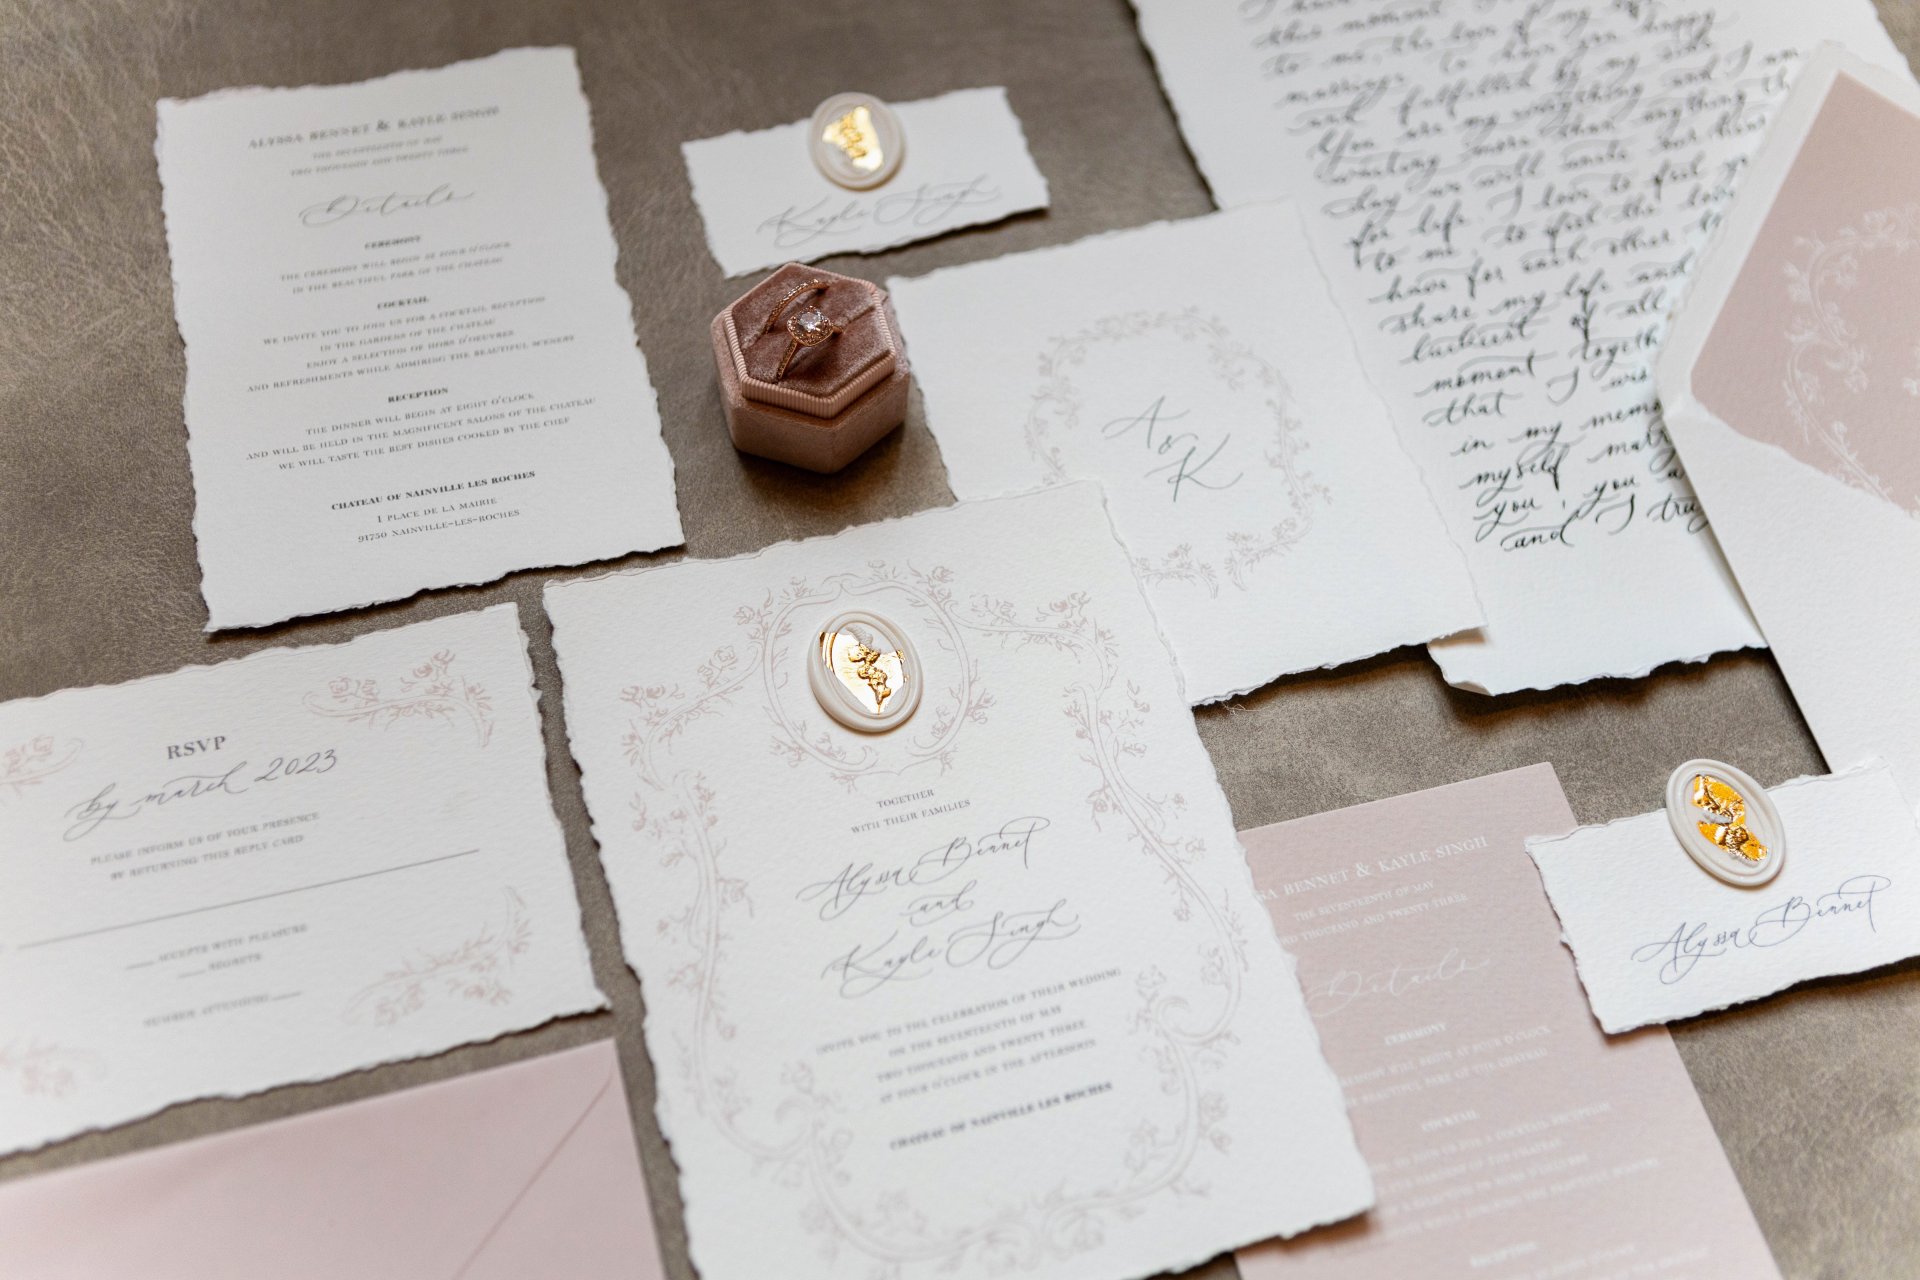 ALYSSA BENNET & KAYLE SINGH
THE SEVENTEENTH OF MAY
TWO THOUSAND AND TWENTY THREE
Details
CEREMONY
THE CEREMONY WILL BEGIN AT FOUR O'CLOCK
IN THE BEAUTIFUL PARK OF THE CHATEAU
COCKTAIL
WE INVITE YOU TO JOIN US FOR A COCKTAIL RECEPTION
IN THE GARDENS OF THE CHATEAU
ENJOY A SELECTION OF HORS D'OEUVRES
AND REFRESHMENTS WHILE ADMIRING THE BEAUTIFUL SCENERY
RECEPTION
THE DINNER WILL BEGIN AT EIGHT O'CLOCK
AND WILL BE HELD IN THE MAGNIFICENT SALONS OF THE CHATEAU
WE WILL TASTE THE BEST DISHES COOKED BY THE CHEF
CHATEAU OF NAINVILLE LES ROCHES
1 PLACE DE LA MAIRIE
91750 NAINVILLE-LES-ROCHES
Kayle Singh
A
&
K
this moment
to me, the love of my
marriage. To have you happy
and fulfilled by my side
You are my everything and I am
waiting more than anything th
day we will unite our hand
for life. I love to feel yo
to me, to feel the love
have for each other t
share my life and
luckiest of all
moment togeth
that I wi
in my memo
myself
you, you a
and I tru
RSVP
by march 2023
PLEASE INFORM US OF YOUR PRESENCE
BY RETURNING THIS REPLY CARD
ACCEPTS WITH PLEASURE
REGRETS
NUMBER ATTENDING
TOGETHER
WITH THEIR FAMILIES
Alyssa Bennet
and
Kayle Singh
INVITE YOU TO THE CELEBRATION OF THEIR WEDDING
ON THE SEVENTEENTH OF MAY
TWO THOUSAND AND TWENTY THREE
AT FOUR O'CLOCK IN THE AFTERNOON
CHATEAU OF NAINVILLE LES ROCHES
SA BENNET & KAYLE SINGH
THE SEVENTEENTH OF MAY
THOUSAND AND TWENTY THREE
Details
CEREMONY
EMONY WILL BEGIN AT FOUR O'CLOCK
BEAUTIFUL PARK OF THE CHATEAU
COCKTAIL
Alyssa Bennet